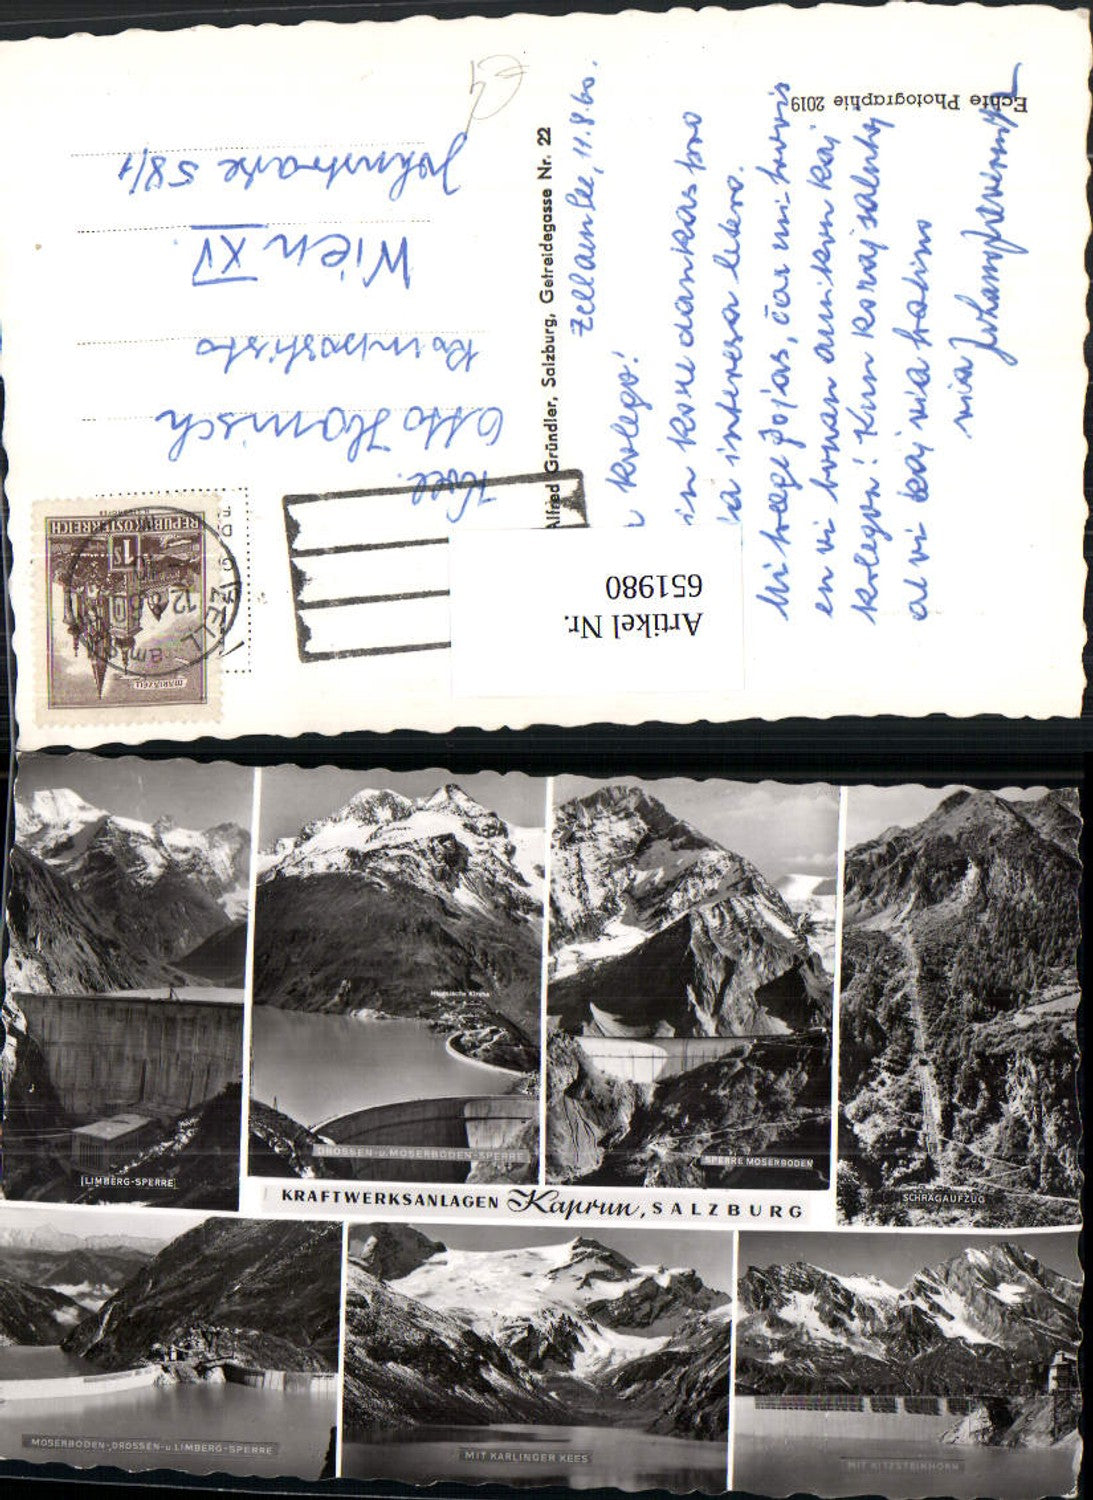 Echte Photographie 2019
Alfred Gründler, Salzburg, Getreidegasse Nr. 22
Zell am See, 11.8.60.
kolego!
kore dankas pro
interesa letero.
Mi treege ĝojas, ĉar mi trovis
en vi bonan amikon kaj
kolegon! Kun koraj salutoj
al vi kaj via
via
Koll.
Otto Hanisch
Kompostisto
Wien XV.
Johnstraße 58/1
REPUBLIK ÖSTERREICH
1S
MARIAZELL
ZELL am
12.8.60
Artikel Nr.
651980
LIMBERG-SPERRE
Heidnische Kirche
DROSSEN- u. MOSERBODEN-SPERRE
SPERRE MOSERBODEN
SCHRÄGAUFZUG
KRAFTWERKSANLAGEN Kaprun, SALZBURG
MOSERBODEN-DROSSEN-u LIMBERG-SPERRE
MIT KARLINGER KEES
MIT KITZSTEINHORN